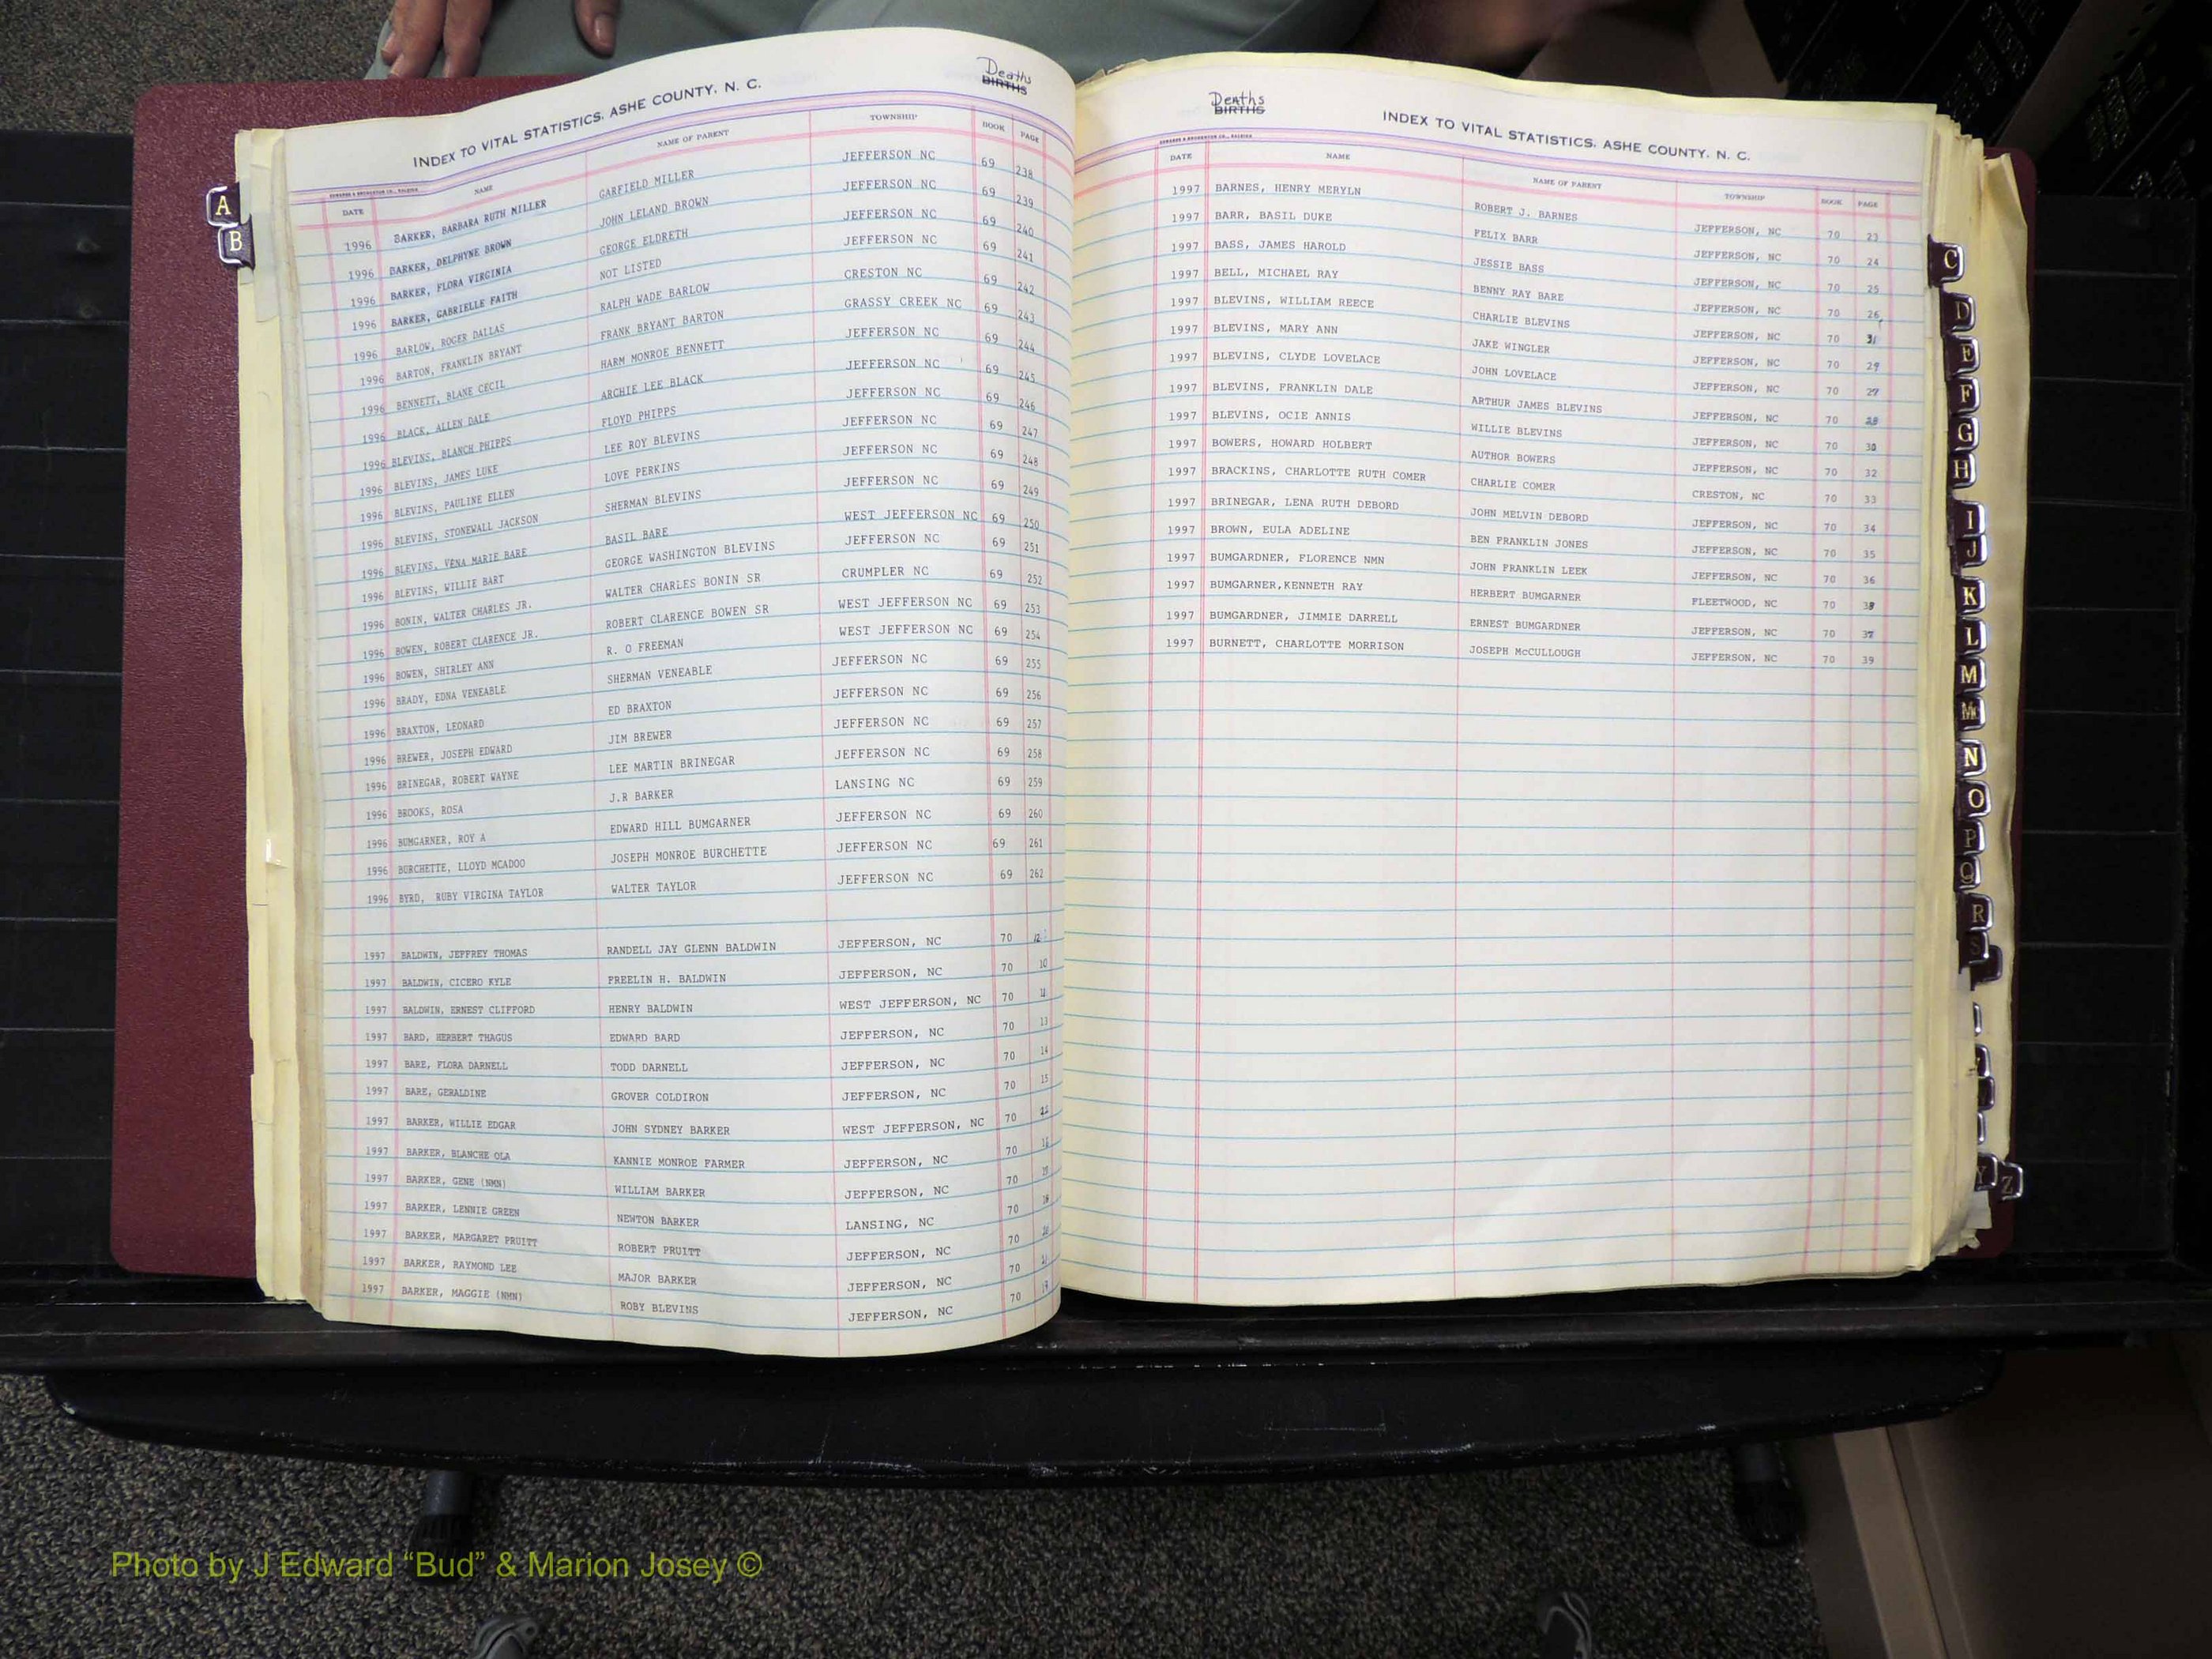 Deaths
BIRTHS
INDEX TO VITAL STATISTICS, ASHE COUNTY, N. C.
DATE NAME NAME OF PARENT TOWNSHIP BOOK PAGE
1996 BARKER, BARBARA RUTH MILLER GARFIELD MILLER JEFFERSON NC 69 238
1996 BARKER, DELPHYNE BROWN JOHN LELAND BROWN JEFFERSON NC 69 239
1996 BARKER, FLORA VIRGINIA GEORGE ELDRETH JEFFERSON NC 69 240
1996 BARKER, GABRIELLE FAITH NOT LISTED JEFFERSON NC 69 241
1996 BARLOW, ROGER DALLAS RALPH WADE BARLOW CRESTON NC 69 242
1996 BARTON, FRANKLIN BRYANT FRANK BRYANT BARTON GRASSY CREEK NC 69 243
1996 BENNETT, BLANE CECIL HARM MONROE BENNETT JEFFERSON NC 69 244
1996 BLACK, ALLEN DALE ARCHIE LEE BLACK JEFFERSON NC 69 245
1996 BLEVINS, BLANCH PHIPPS FLOYD PHIPPS JEFFERSON NC 69 246
1996 BLEVINS, JAMES LUKE LEE ROY BLEVINS JEFFERSON NC 69 247
1996 BLEVINS, PAULINE ELLEN LOVE PERKINS JEFFERSON NC 69 248
1996 BLEVINS, STONEWALL JACKSON SHERMAN BLEVINS JEFFERSON NC 69 249
1996 BLEVINS, VENA MARIE BARE BASIL BARE WEST JEFFERSON NC 69 250
1996 BLEVINS, WILLIE BART GEORGE WASHINGTON BLEVINS JEFFERSON NC 69 251
1996 BONIN, WALTER CHARLES JR. WALTER CHARLES BONIN SR CRUMPLER NC 69 252
1996 BOWEN, ROBERT CLARENCE JR. ROBERT CLARENCE BOWEN SR WEST JEFFERSON NC 69 253
1996 BOWEN, SHIRLEY ANN R. O FREEMAN WEST JEFFERSON NC 69 254
1996 BRADY, EDNA VENEABLE SHERMAN VENEABLE JEFFERSON NC 69 255
1996 BRAXTON, LEONARD ED BRAXTON JEFFERSON NC 69 256
1996 BREWER, JOSEPH EDWARD JIM BREWER JEFFERSON NC 69 257
1996 BRINEGAR, ROBERT WAYNE LEE MARTIN BRINEGAR JEFFERSON NC 69 258
1996 BROOKS, ROSA J.R BARKER LANSING NC 69 259
1996 BUMGARNER, ROY A EDWARD HILL BUMGARNER JEFFERSON NC 69 260
1996 BURCHETTE, LLOYD MCADOO JOSEPH MONROE BURCHETTE JEFFERSON NC 69 261
1996 BYRD, RUBY VIRGINA TAYLOR WALTER TAYLOR JEFFERSON NC 69 262
1997 BALDWIN, JEFFREY THOMAS RANDELL JAY GLENN BALDWIN JEFFERSON, NC 70 12
1997 BALDWIN, CICERO KYLE FREELIN H. BALDWIN JEFFERSON, NC 70 10
1997 BALDWIN, ERNEST CLIFFORD HENRY BALDWIN WEST JEFFERSON, NC 70 11
1997 BARD, HERBERT THAGUS EDWARD BARD JEFFERSON, NC 70 13
1997 BARE, FLORA DARNELL TODD DARNELL JEFFERSON, NC 70 14
1997 BARE, GERALDINE GROVER COLDIRON JEFFERSON, NC 70 15
1997 BARKER, WILLIE EDGAR JOHN SYDNEY BARKER WEST JEFFERSON, NC 70 22
1997 BARKER, BLANCHE OLA KANNIE MONROE FARMER JEFFERSON, NC 70
1997 BARKER, GENE (NMN) WILLIAM BARKER JEFFERSON, NC 70
1997 BARKER, LENNIE GREEN NEWTON BARKER LANSING, NC 70 18
1997 BARKER, MARGARET PRUITT ROBERT PRUITT JEFFERSON, NC 70 20
1997 BARKER, RAYMOND LEE MAJOR BARKER JEFFERSON, NC 70 21
1997 BARKER, MAGGIE (NMN) ROBY BLEVINS JEFFERSON, NC 70 19
Deaths
BIRTHS
INDEX TO VITAL STATISTICS, ASHE COUNTY, N. C.
DATE NAME NAME OF PARENT TOWNSHIP BOOK PAGE
1997 BARNES, HENRY MERYLN ROBERT J. BARNES JEFFERSON, NC 70 23
1997 BARR, BASIL DUKE FELIX BARR JEFFERSON, NC 70 24
1997 BASS, JAMES HAROLD JESSIE BASS JEFFERSON, NC 70 25
1997 BELL, MICHAEL RAY BENNY RAY BARE JEFFERSON, NC 70 26
1997 BLEVINS, WILLIAM REECE CHARLIE BLEVINS JEFFERSON, NC 70 31
1997 BLEVINS, MARY ANN JAKE WINGLER JEFFERSON, NC 70 29
1997 BLEVINS, CLYDE LOVELACE JOHN LOVELACE JEFFERSON, NC 70 27
1997 BLEVINS, FRANKLIN DALE ARTHUR JAMES BLEVINS JEFFERSON, NC 70 28
1997 BLEVINS, OCIE ANNIS WILLIE BLEVINS JEFFERSON, NC 70 30
1997 BOWERS, HOWARD HOLBERT AUTHOR BOWERS JEFFERSON, NC 70 32
1997 BRACKINS, CHARLOTTE RUTH COMER CHARLIE COMER CRESTON, NC 70 33
1997 BRINEGAR, LENA RUTH DEBORD JOHN MELVIN DEBORD JEFFERSON, NC 70 34
1997 BROWN, EULA ADELINE BEN FRANKLIN JONES JEFFERSON, NC 70 35
1997 BUMGARDNER, FLORENCE NMN JOHN FRANKLIN LEEK JEFFERSON, NC 70 36
1997 BUMGARNER,KENNETH RAY HERBERT BUMGARNER FLEETWOOD, NC 70 38
1997 BUMGARDNER, JIMMIE DARRELL ERNEST BUMGARDNER JEFFERSON, NC 70 37
1997 BURNETT, CHARLOTTE MORRISON JOSEPH McCULLOUGH JEFFERSON, NC 70 39
A
B
C
D
E
F
G
H
I
J
K
L
M
Mc
N
O
P
Q
R
S
Y
Z
Photo by J Edward “Bud” & Marion Josey ©